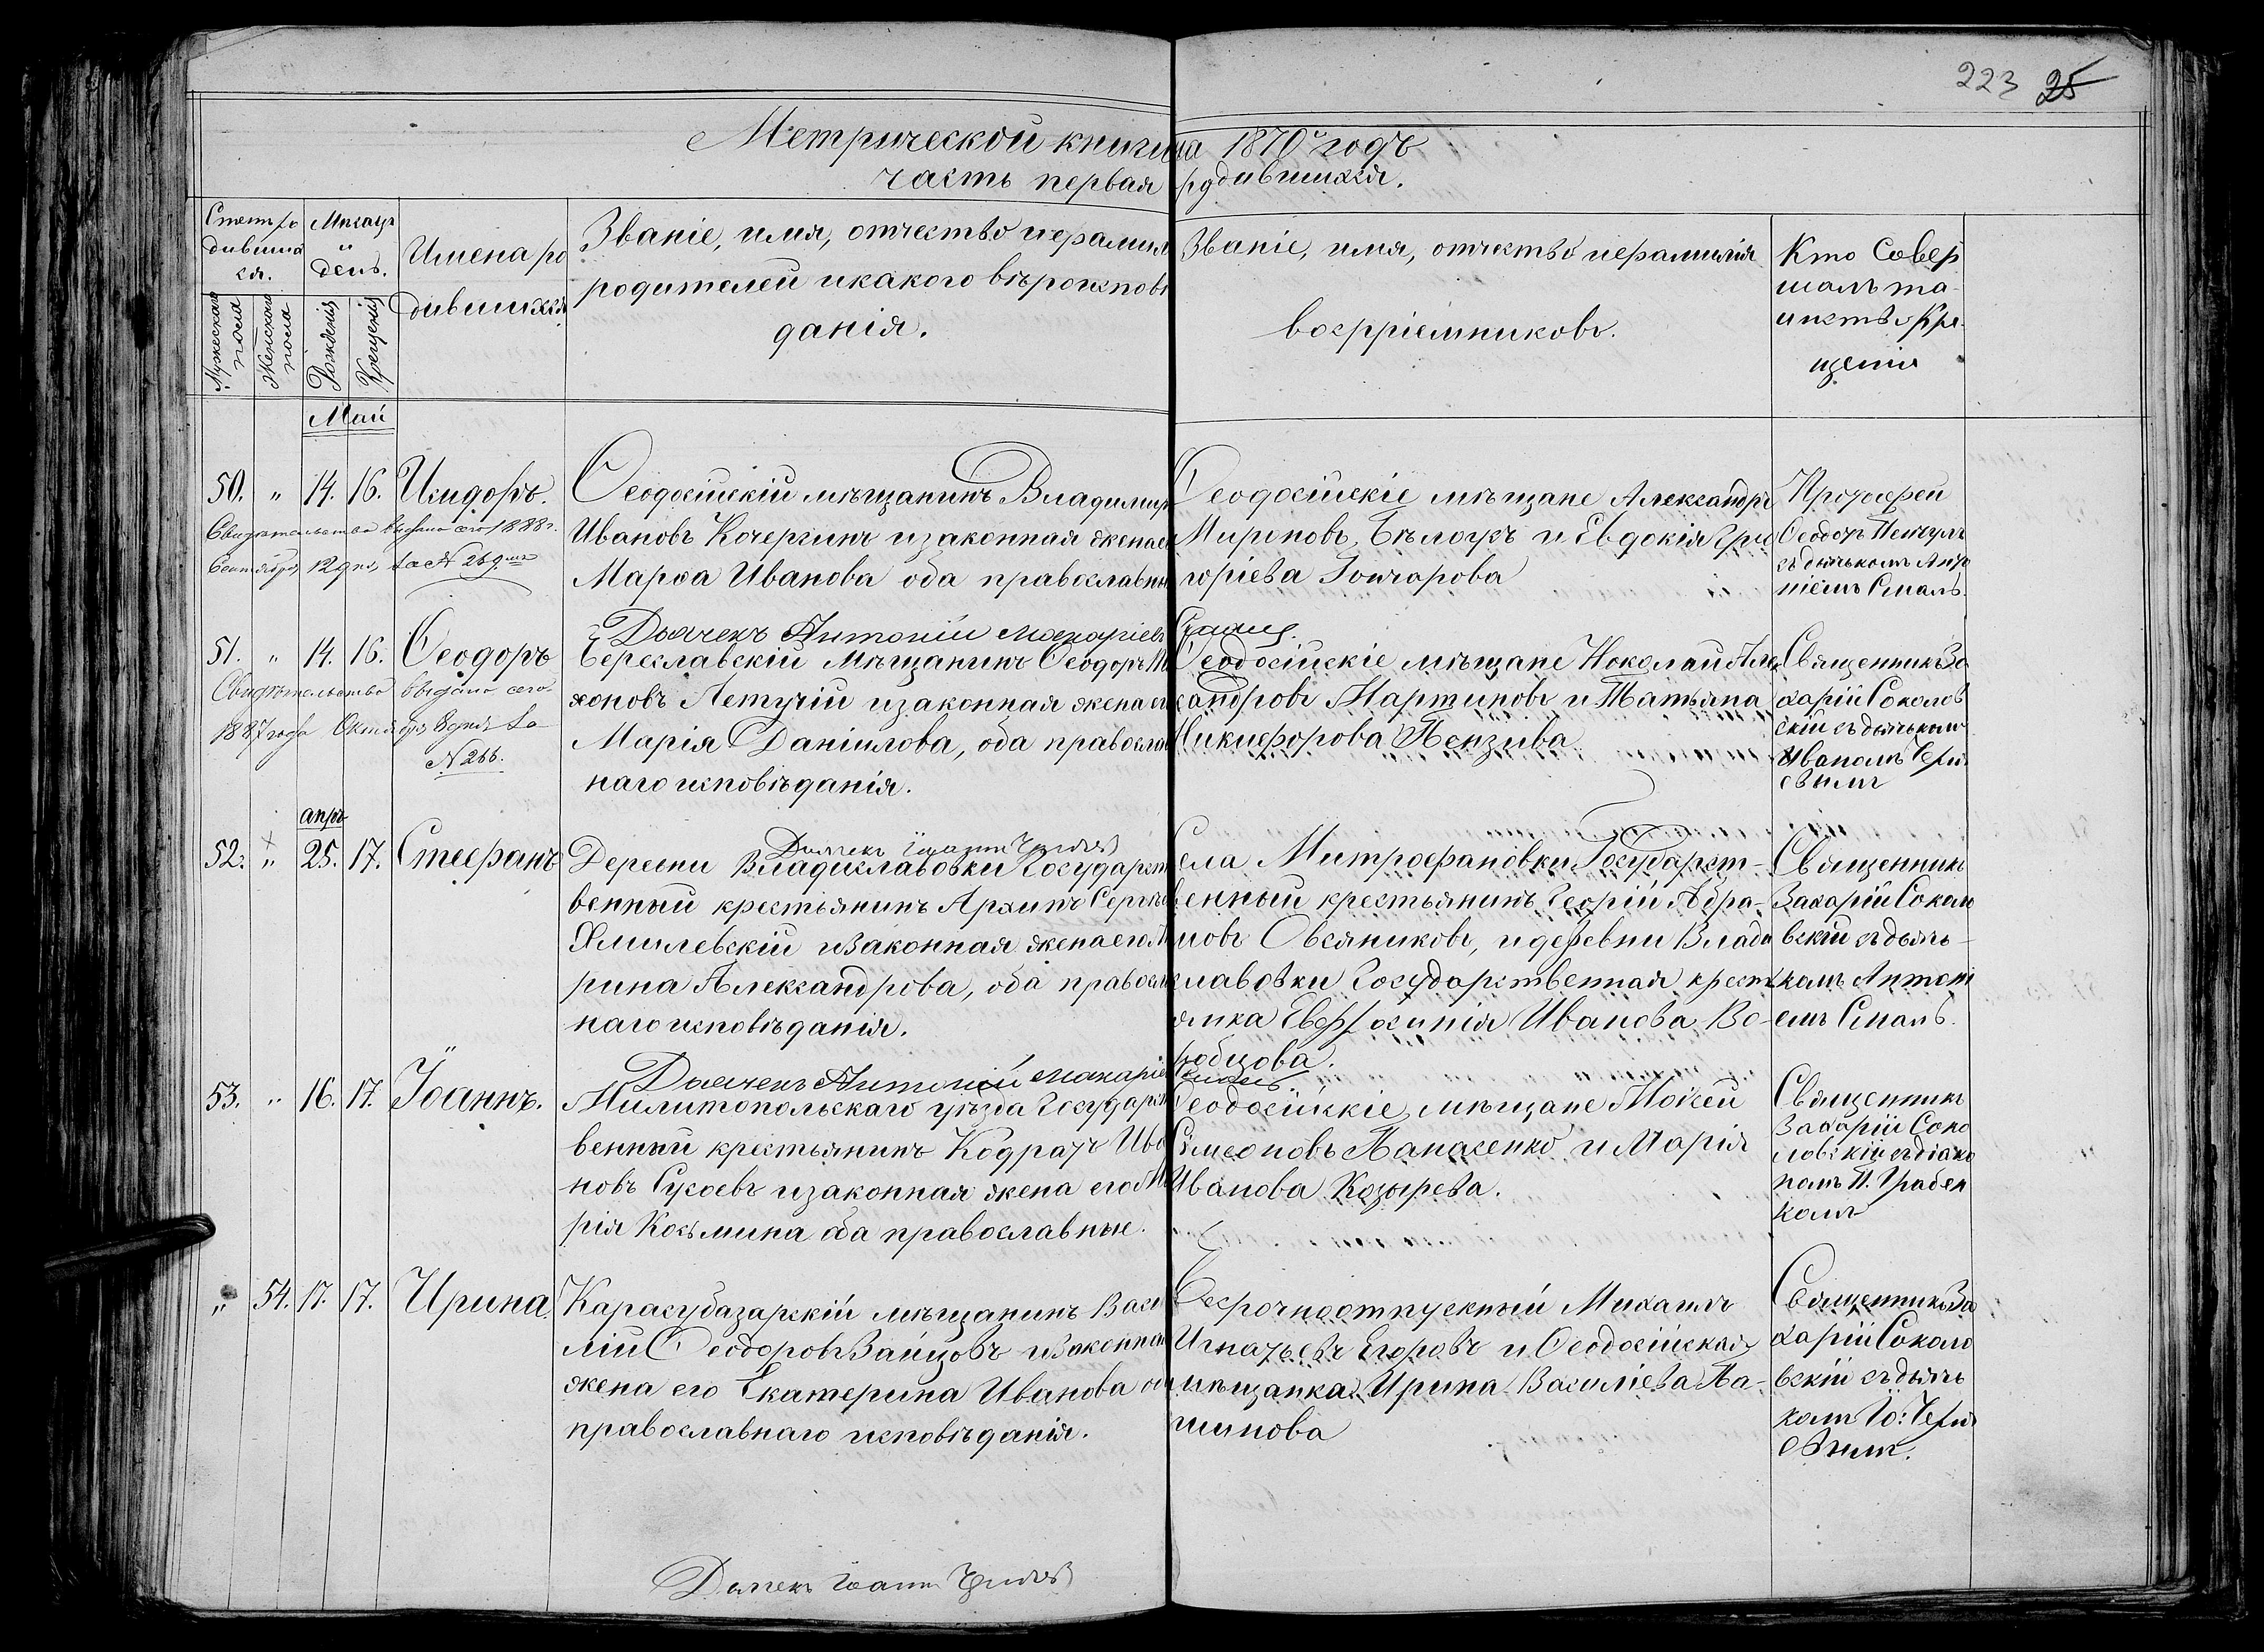 223 25
Метрической книги на 1870й годъ
часть первая родившихся.
Счетъ ро
дивших
ся.
Мужескаго пола
Женскаго пола
Мѣсяцъ
и
день.
Рожденія
Крещенія
Имена ро
дившихся
Званіе, имя, отчество и фамилія
родителей и какого вѣроисповѣ
данія.
Званіе, имя, отчество и фамилія
воспріемниковъ.
Кто совер
шалъ та-
инство Кре-
щенія
Май
50. " 14. 16. Исидоръ.
Свидетельство выдано сего 1888 г.
Сентября 12 дня, за № 269
Ѳеодосійскій мѣщанинъ Владимиръ
Ивановъ Кочергинъ и законная жена его
Марѳа Иванова оба православные
Ѳеодосійскіе мѣщане Александръ
Мироновъ Бѣлоусъ и Евдокія Гри
горіева Гончарова
Протоіерей
Ѳеодоръ
съ дьячкомъ Анто
ніемъ Смаль.
Дьячекъ Антоній Макаріевъ Смаль
51. " 14. 16. Ѳеодоръ
Свидѣтельство выдано сего
1887 года Октября 8 дня за
№ 266.
Береславскій мѣщанинъ Ѳеодоръ
хоновъ Летучій и законная жена его
Марія Даніилова, оба православ
наго исповѣданія.
Ѳеодосійскіе мѣщане Николай Алек
сандровъ Мартиновъ и Татьяна
Никифорова Пензива
Священникъ За
харій Соколов
скій съ дьячкомъ
Иваномъ Черня
евымъ
апрѣ
52. " 25. 17. Стефанъ
Дьячекъ Іоаннъ
Деревни Владиславовки Государст
венный крестьянинъ Архипъ Сергѣев
Хмилевскій и законная жена его
рина Александрова, оба православ
наго исповѣданія.
Села Митрофановки Государст-
венный крестьянинъ Георгій Абра-
мовъ Овсяниковъ, и деревни Влади
славовки Государственная кресть
янка Евфросинія Иванова Во-
робцова.
Священникъ
Захарій Соколо
вскій съ дьяч-
комъ Антоні
емъ Смаль.
Дьячекъ Антоній Макаріев Смаль
53. " 16. 17. Іоаннъ.
Милитопольскаго уѣзда Государст
венный крестьянинъ Кодратъ Ива
новъ Сусоевъ и законная жена его Ма
рія Косьмина оба православные.
Ѳеодосійскіе мѣщане Моисей
Симеоновъ Панасенко и Марія
Иванова Козырева.
Священникъ
Захарій Соко
ловскій съ діако
номъ П. Грабен
комъ
" 54. 17. 17. Ирина.
Карасубазарскій мѣщанинъ Васи
лій Ѳеодоровъ Зайцовъ и законная
жена его Екатерина Иванова оба
православнаго исповѣданія.
Безсрочноотпускный Михаилъ
Игнатьевъ Егоровъ и Ѳеодосійская
мѣщанка Ирина Василіева Па-
шинова
Священникъ За
харій Соколо
вскій съ дьяч
комъ Іо: Черня
евымъ.
Дьячекъ Іоаннъ